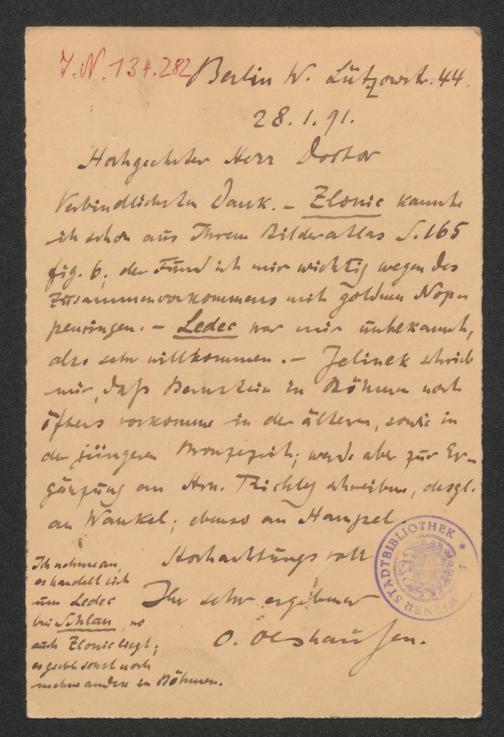 J.N. 134.282
Berlin W. Lützowstr. 44.
28.1.91.
Hochgeehrter Herr Doctor
Verbindlichsten Dank. – Zlonic kannte
ich schon aus Ihrem Bilderatlas S. 165
fig. 6; der Fund ist mir wichtig wegen des
Zusammenvorkommens mit goldnen Nop-
penringen. – Ledec war mir unbekannt,
also sehr willkommen. – Jelinek schrieb
mir, daß Bernstein in Böhmen noch
öfters vorkomme in der älteren, sowie in
der jüngeren Bronzezeit; werde aber zur Er-
gänzung an Hrn. Richlý schreiben, desgl.
an Wankel; ebenso an Hampel
Hochachtungsvoll
Ihr sehr ergebener
O. Olshausen.
Ich nehme an,
es handelt sich
um Ledec
bei Schlan, wo
auch Zlonic liegt;
es giebt sonst noch
mehre andere in Böhmen.
WIENER STADTBIBLIOTHEK